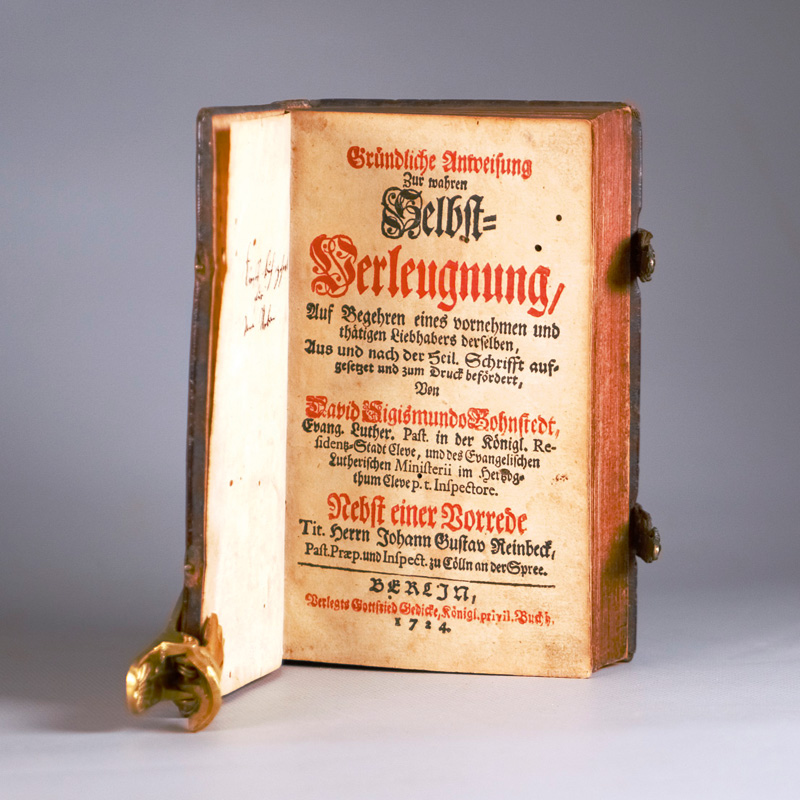 Gründliche Anweisung
Zur wahren
Selbst=
Verleugnung/
Auf Begehren eines vornehmen und
thätigen Liebhabers derselben,
Aus und nach der Heil. Schrifft auf-
gesetzet und zum Druck befördert,
Von
David Sigismundo Bohnstedt,
Evang. Luther. Past. in der Königl. Re-
sidentz-Stadt Cleve, und des Evangelischen
Lutherischen Ministerii im Hertzog-
thum Cleve p. t. Inspectore.
Nebst einer Vorrede
Tit. Herrn Johann Gustav Reinbeck,
Past. Præp. und Inspect. zu Cölln an der Spree.
BERLIN,
Verlegts Gottfried Gedicke, Königl. privil. Buchh.
1724.